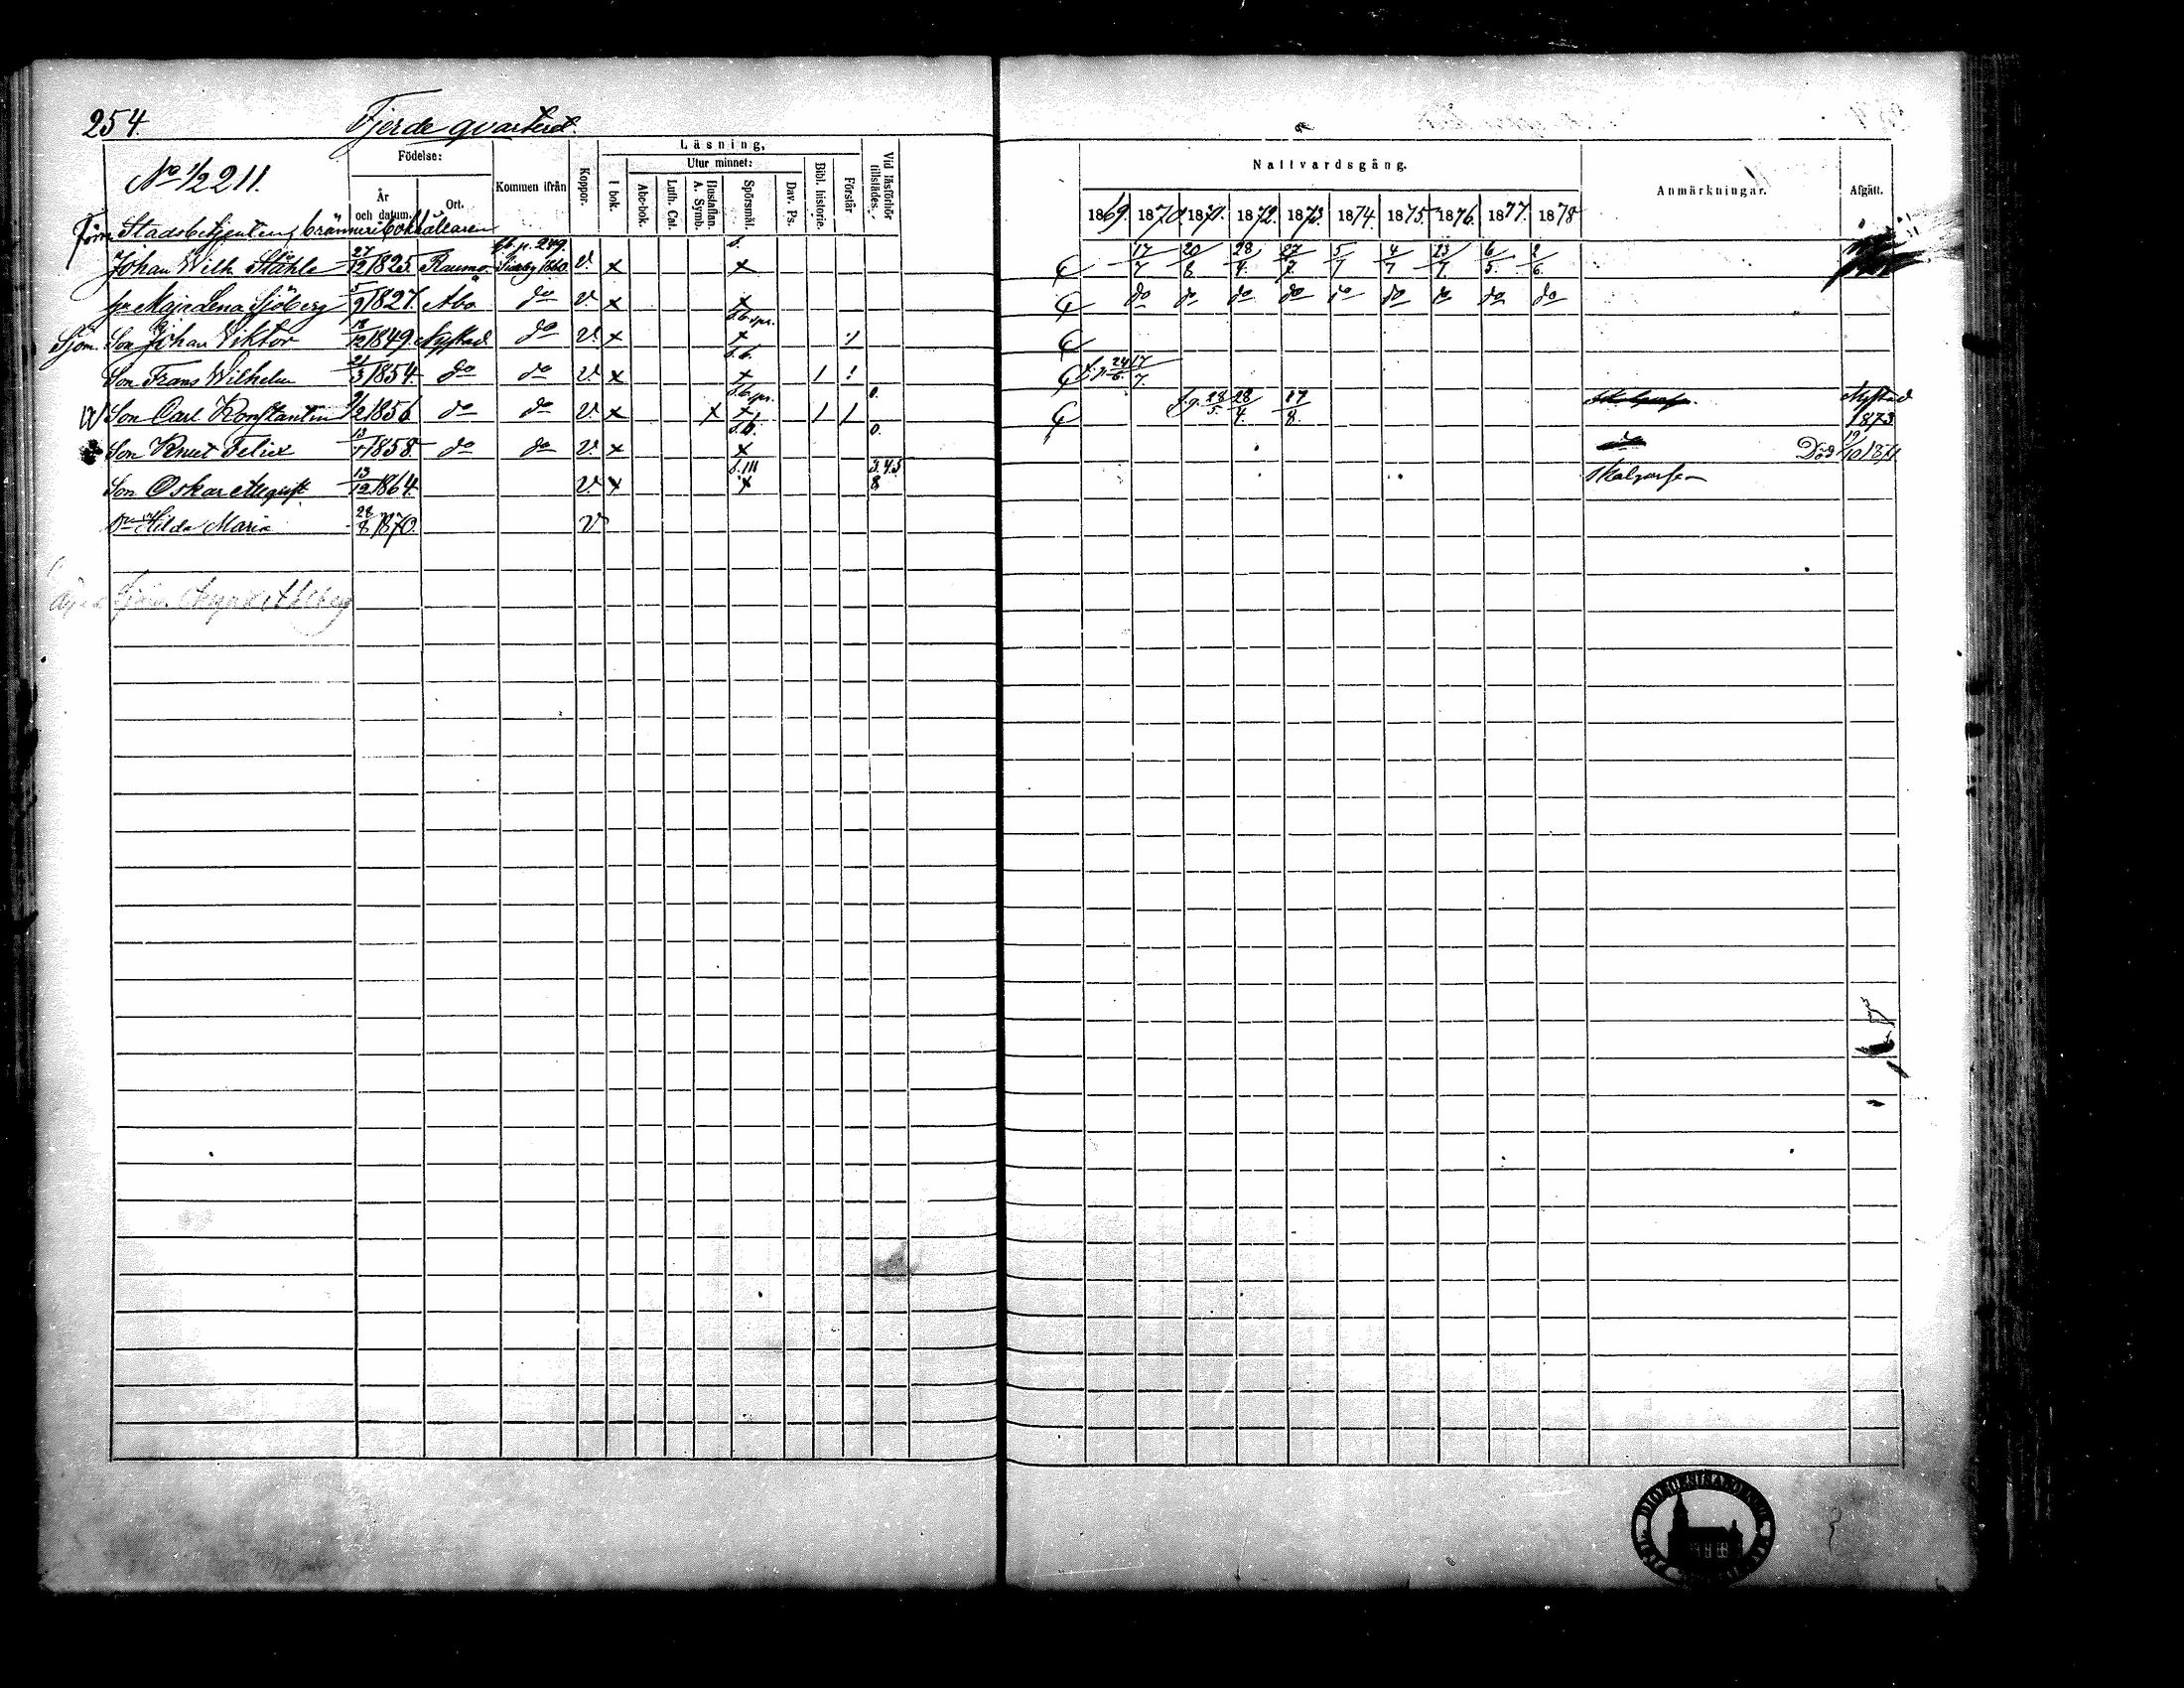 254
Fjerde qvarteret.
No 1/2 211.
Födelse:
År och datum.
Ort.
Kommen ifrån
Koppor.
Läsning,
I bok.
Utur minnet:
Abc-bok.
Luth. Cat.
Hustaflan. A. Symb.
Spörsmål.
Dav. Ps.
Bibl. historie.
Förstår
Vid läsförhör tillstädes.
Nattvardsgång.
1869. 1870. 1871. 1872. 1873. 1874. 1875. 1876. 1877. 1878
Anmärkningar.
Afgått.
Förre Stadsbetjenten, brännribokhållaren
Johan Wilh. Ståhle 27/12 1825. Raumo. p. 249. 1860. v. x x 17/7 20/8 28/4. 27/7. 5/7 4/7 23/7. 6/5. 2/6.
Maja Lena Sjöberg 5/9 1827. Åbo do v. x x do do do do do do do do do
Sjöm. Son Johan Viktor 18/12 1849. Nystad do v. x x
Son Frans Wilhelm 21/3 1854. do do v. x x 24/6. 17/7.
Son Carl Konstantin 21/2 1856 do do v. x x x 28/5. 28/4. 17/8. Nystad 1873
Son Knut Felix 1858. do do v. x x 0. Död 19/10 1871
Son Oskar August 13/12 1864. v. x x 8
Hilda Maria 28/8 1870. v